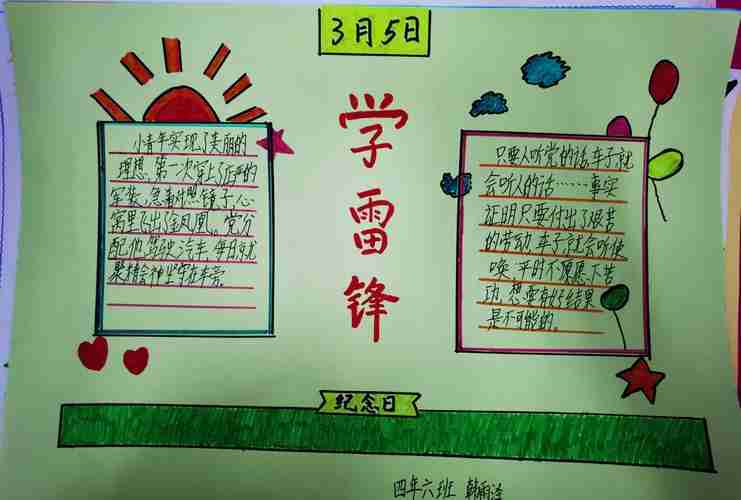 3月5日
学雷锋
小青年实现了美丽的
理想、第一次穿上了庄严的
军装、急事你照镜子、心
窝里飞出了金凤凰。党分
配他驾驶汽车、每日就
聚精会神坐守在车旁
只要人听党的话、车子就
会听人的话……事实
证明只要付出了艰苦
的劳动、车子就会听使
唤、平时不愿意下苦
功、想要有好结果
是不可能的。
纪念日
四年六班 韩雨